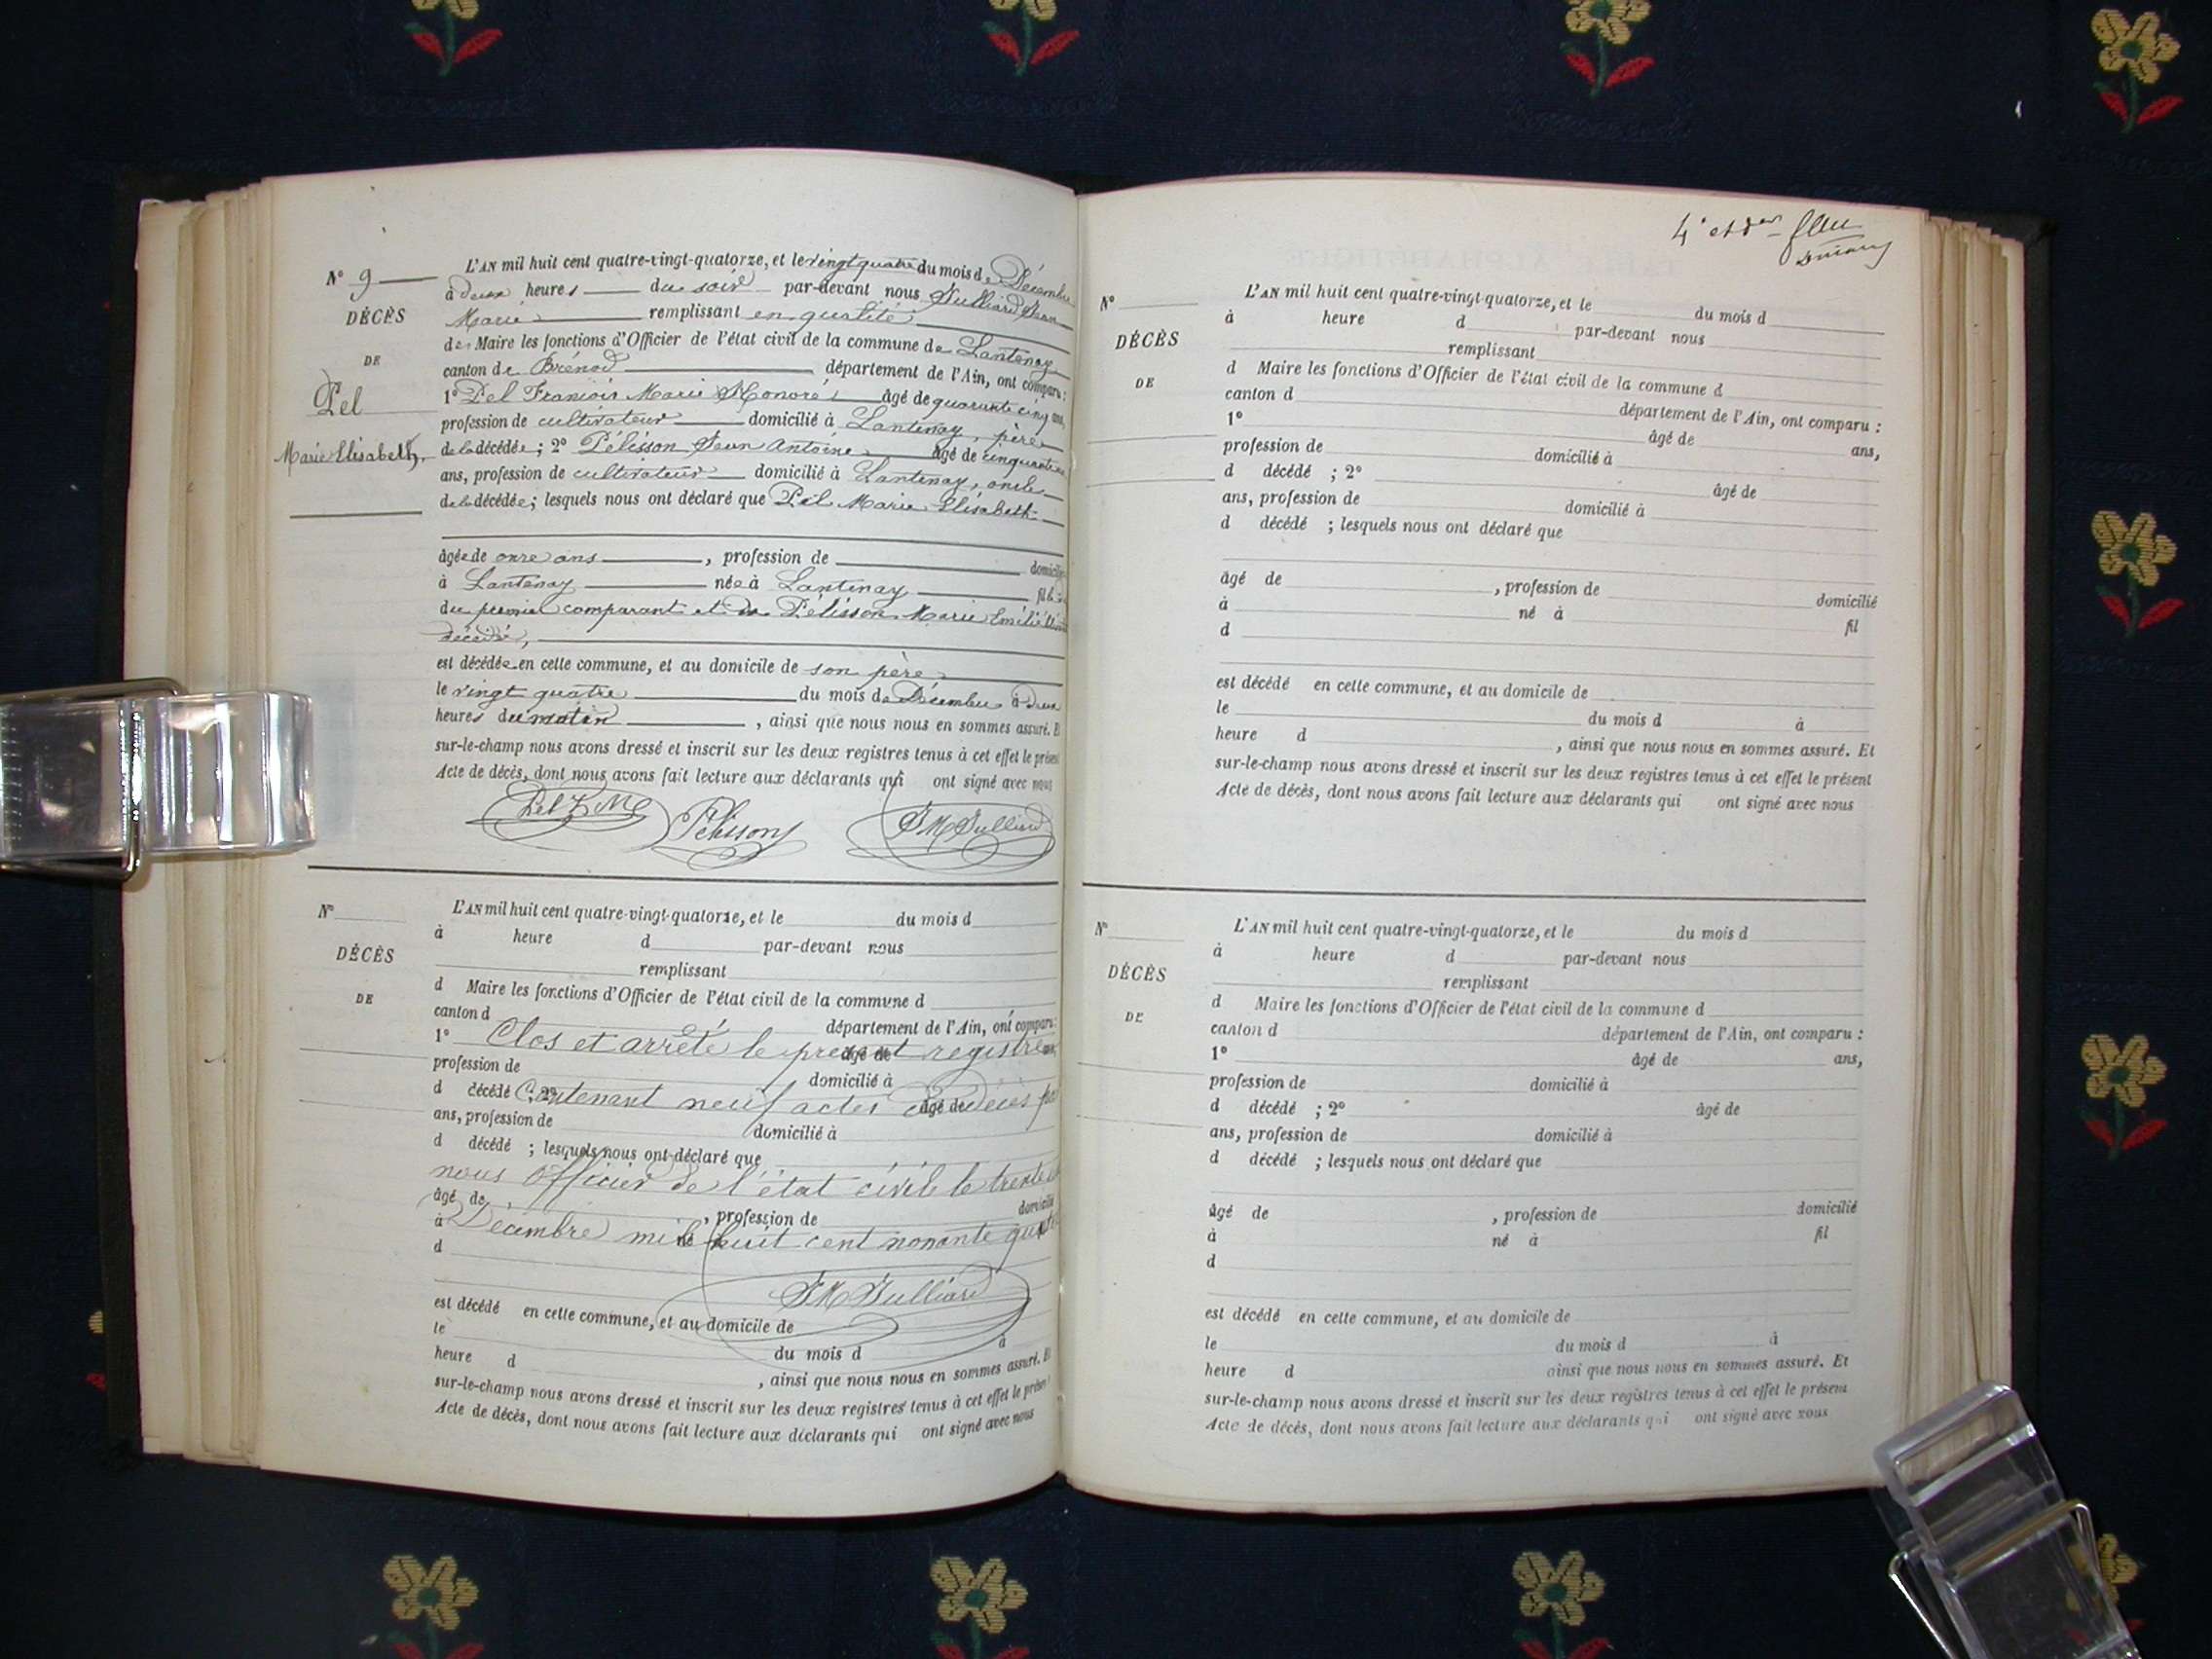 N° 9
DÉCÈS
DE
Pel
Marie Elisabeth
L'AN mil huit cent quatre-vingt-quatorze, et le vingt quatre du mois de Décembre
à deux heures du soir par-devant nous Julliard Jean
Marie remplissant en qualité
de Maire les fonctions d'Officier de l'état civil de la commune de Lantenay
canton de Brénod département de l'Ain, ont comparu :
1° Pel François Marie Honoré âgé de quarante cinq ans,
profession de cultivateur domicilié à Lantenay, père
de la décédée ; 2° Pélisson Jean Antoine âgé de
ans, profession de cultivateur domicilié à Lantenay, oncle
de la décédée ; lesquels nous ont déclaré que Pel Marie Elisabeth
âgée de onze ans , profession de domicilié
à Lantenay née à Lantenay fille
du premier comparant et de Pélisson Marie Emélie
décédé,
est décédée en cette commune, et au domicile de son père
le vingt quatre du mois de Décembre à deux
heures du matin , ainsi que nous nous en sommes assuré. Et
sur-le-champ nous avons dressé et inscrit sur les deux registres tenus à cet effet le présent
Acte de décès, dont nous avons fait lecture aux déclarants qui ont signé avec nous
Pel F. M. Pélisson J M Julliard
N°
DÉCÈS
DE
L'AN mil huit cent quatre-vingt-quatorze, et le du mois d
à heure d par-devant nous
remplissant
d Maire les fonctions d'Officier de l'état civil de la commune d
canton d département de l'Ain, ont comparu :
1° âgé de ans,
Clos et arrêté le présent registre
profession de domicilié à
d décédé ; 2° âgé de
Contenant neuf actes de décès par
ans, profession de domicilié à
d décédé ; lesquels nous ont déclaré que
nous Officier de l'état civil le trente
âgé de , profession de domicilié
à né à
Décembre mil huit cent nonante quatre
d
J M Julliard
est décédé en cette commune, et au domicile de
le du mois d à
heure d , ainsi que nous nous en sommes assuré. Et
sur-le-champ nous avons dressé et inscrit sur les deux registres tenus à cet effet le présent
Acte de décès, dont nous avons fait lecture aux déclarants qui ont signé avec nous
4e et der
N°
DÉCÈS
DE
L'AN mil huit cent quatre-vingt-quatorze, et le du mois d
à heure d par-devant nous
remplissant
d Maire les fonctions d'Officier de l'état civil de la commune d
canton d département de l'Ain, ont comparu :
1° âgé de ans,
profession de domicilié à
d décédé ; 2° âgé de
ans, profession de domicilié à
d décédé ; lesquels nous ont déclaré que
âgé de , profession de domicilié
à né à fil
d
est décédé en cette commune, et au domicile de
le du mois d à
heure d , ainsi que nous nous en sommes assuré. Et
sur-le-champ nous avons dressé et inscrit sur les deux registres tenus à cet effet le présent
Acte de décès, dont nous avons fait lecture aux déclarants qui ont signé avec nous
N°
DÉCÈS
DE
L'AN mil huit cent quatre-vingt-quatorze, et le du mois d
à heure d par-devant nous
remplissant
d Maire les fonctions d'Officier de l'état civil de la commune d
canton d département de l'Ain, ont comparu :
1° âgé de ans,
profession de domicilié à
d décédé ; 2° âgé de
ans, profession de domicilié à
d décédé ; lesquels nous ont déclaré que
âgé de , profession de domicilié
à né à fil
d
est décédé en cette commune, et au domicile de
le du mois d à
heure d ainsi que nous nous en sommes assuré. Et
sur-le-champ nous avons dressé et inscrit sur les deux registres tenus à cet effet le présent
Acte de décès, dont nous avons fait lecture aux déclarants qui ont signé avec nous